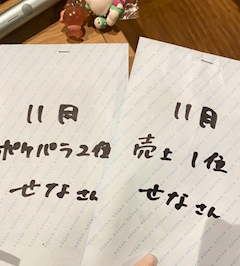 11月
ポケパラ2位
せなさん
11月
売上1位
せなさん